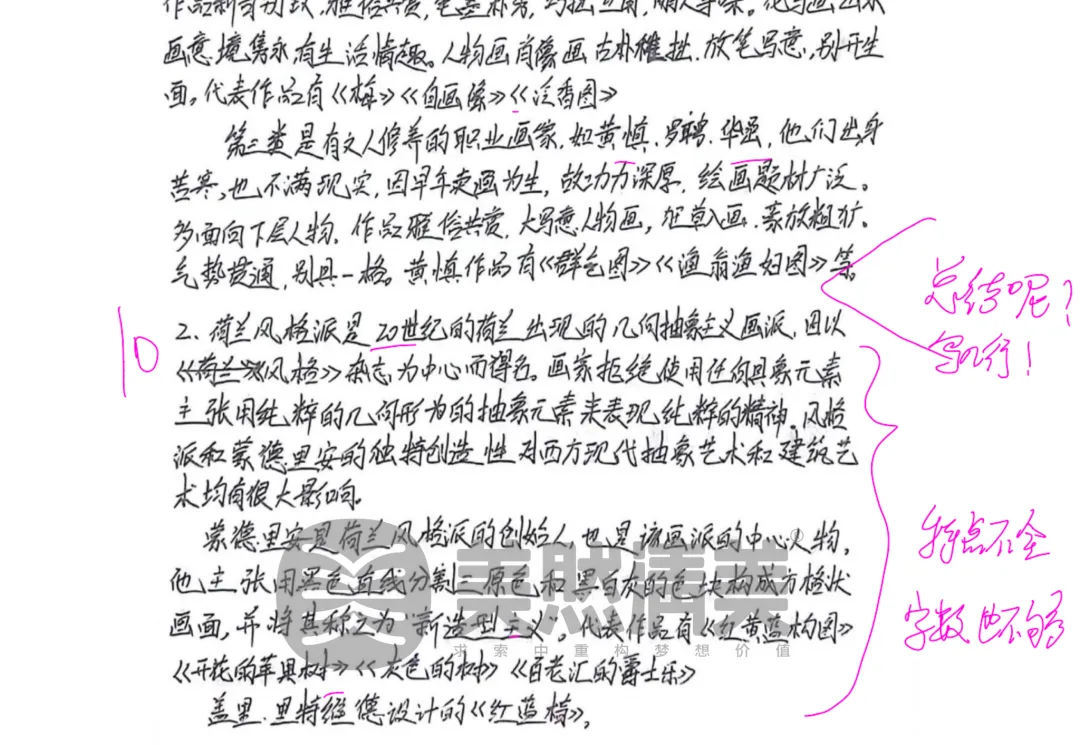 画意境隽永,有生活情趣。人物画肖像画古朴稚拙.放笔写意,别开生
面。代表作品有《梅》《自画像》
第三类是有文人修养的职业画家,如黄慎.罗聘.华嵒,他们出身
苦寒,也不满现实,因早年卖画为生,故功力深厚.绘画题材广泛。
多面向下层人物.作品雅俗共赏,大写意人物画,狂草入画.豪放粗犷.
气势贯通,别具一格。黄慎作品有《群乞图》《渔翁渔妇图》等。
总结呢?
写几行!
10
2.荷兰风格派是20世纪的荷兰出现的几何抽象主义画派,因以
《风格》杂志为中心而得名。画家拒绝使用任何具象元素
主张用纯粹的几何形为的抽象元素来表现纯粹的精神.风格
派和蒙德里安的独特创造性对西方现代抽象艺术和建筑艺
术均有很大影响.
蒙德里安是荷兰风格派的创始人也是该画派的中心人物,
他主张用黑色直线分割三原色和黑白灰的色块构成方格状
画面,并将其称之为"新造型主义"。代表作品有《红黄蓝构图》
《开花的苹果树》《灰色的树》《百老汇的爵士乐》
盖里.里特维德设计的《红蓝椅》,
特点不全
字数也不够
美然清美
求索中重构梦想价值